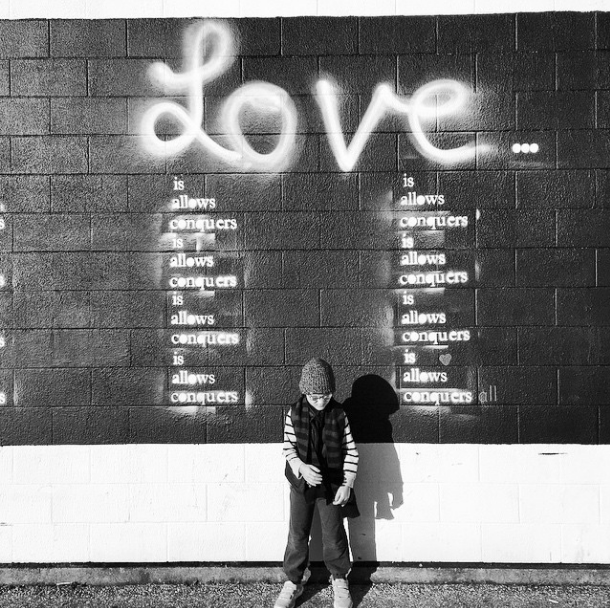 Love...
is
allows
conquers
is
allows
conquers
is
allows
conquers
is
allows
conquers
is
allows
conquers
is
allows
conquers
is
allows
conquers
is ♥
allows
conquers all